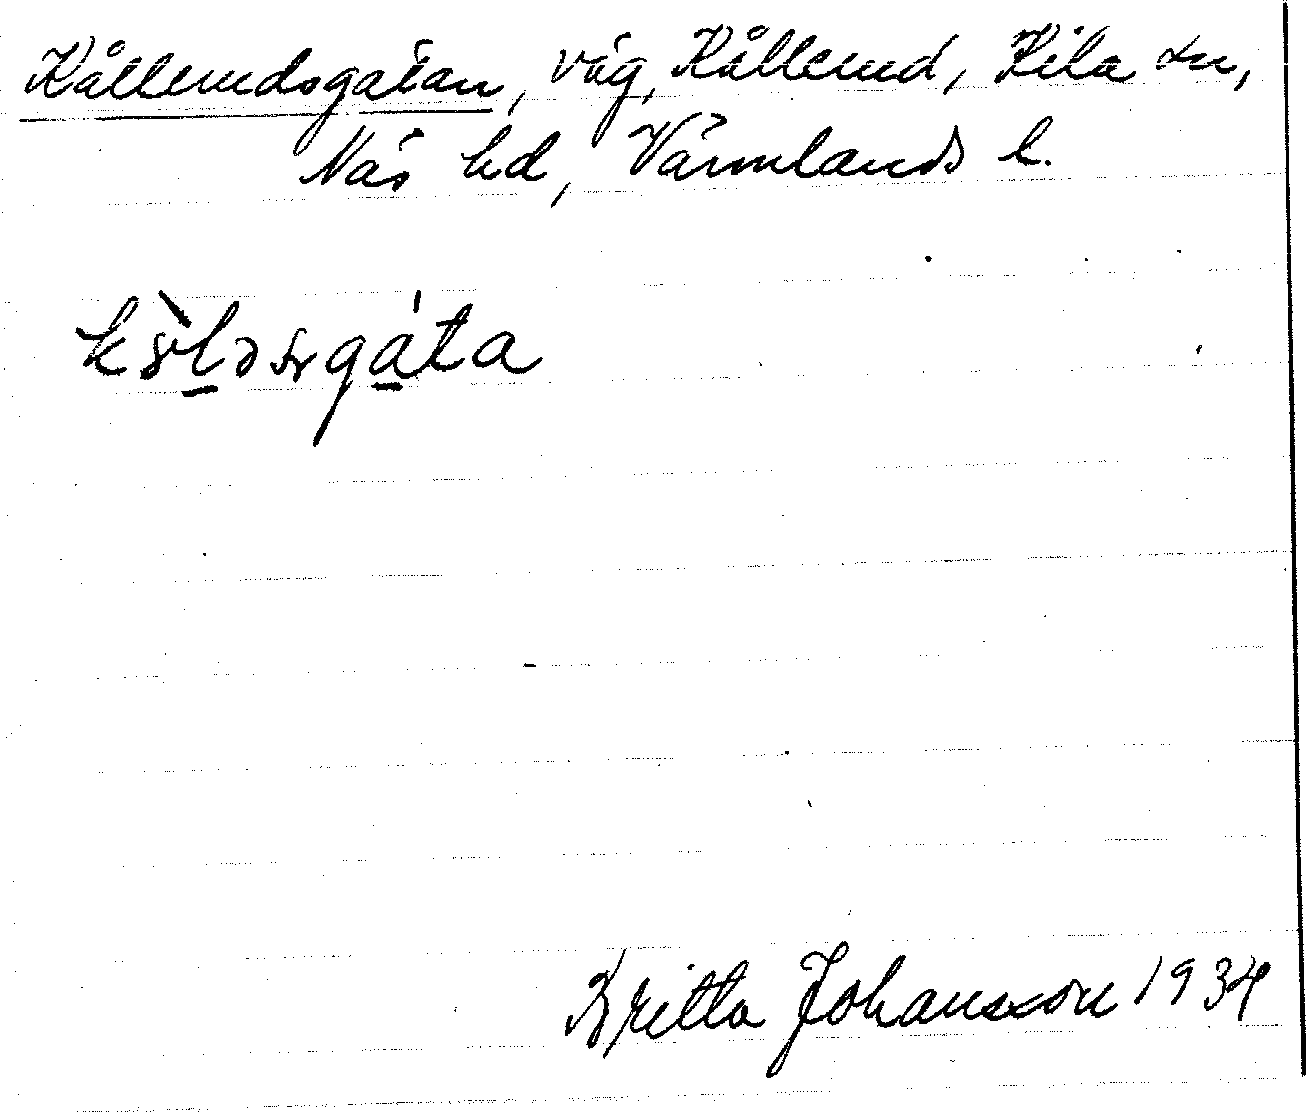 Kållerudsgatan, väg, Kållerud, Kila sn,
Näs hd, Värmlands l.
Britta Johansson 1934